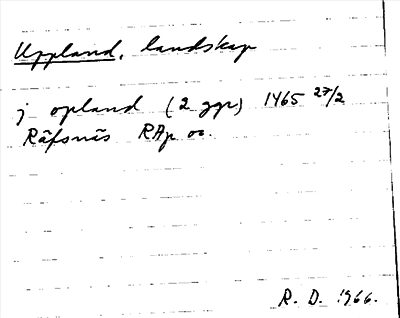 Uppland, landskap
j opland (2 ggr) 1465 27/2
Räfsnäs RAp or.
R. D. 1966.